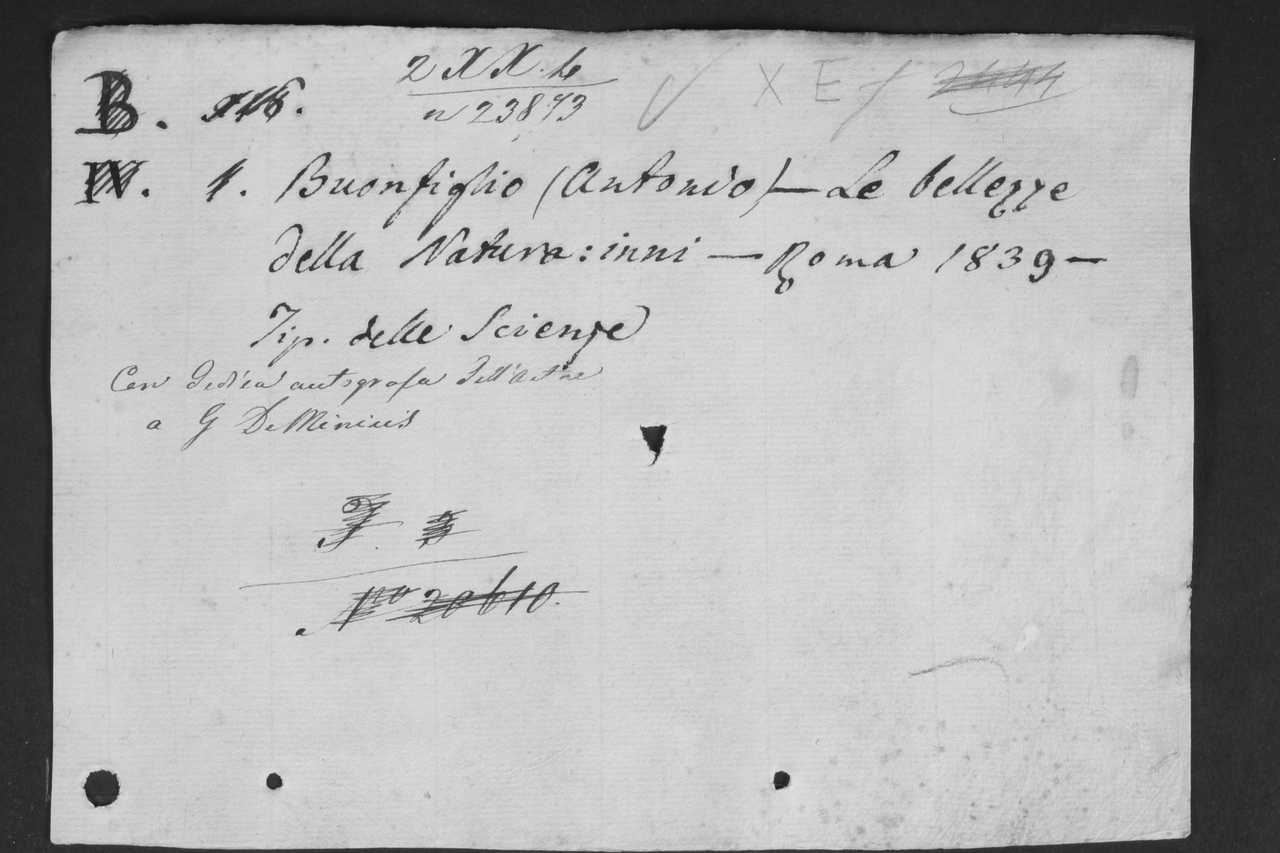 2 XX. L
B. n 23873 X E f 2444
IV. 1. Buonfiglio (Antonio) — Le bellezze
della Natura: inni — Roma 1839 —
Tip. delle Scienze
Con dedica autografa dell'autore
a G De Minicis
No 20610.